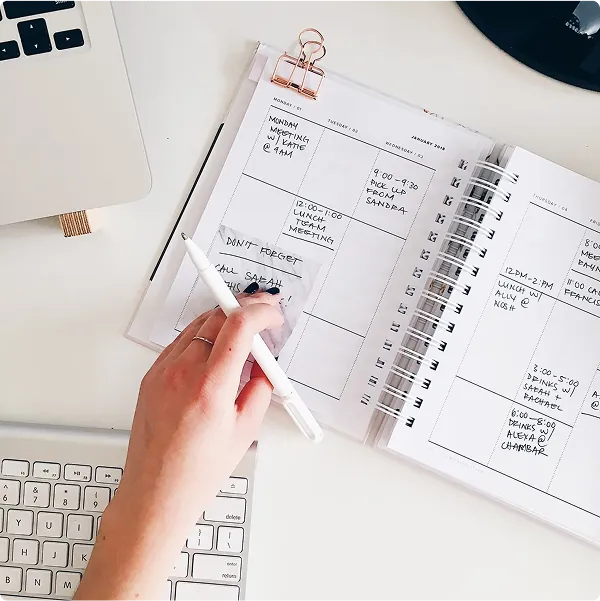 JANUARY 2018
MONDAY / 01
TUESDAY / 02
WEDNESDAY / 03
THURSDAY / 04
MONDAY
MEETING
W/ KATIE
@ 9AM
9:00-9:30
PICK UP
FROM
SANDRA
12:00-1:00
LUNCH
TEAM
MEETING
DON'T FORGET
CALL SARAH
THIS
12PM-2PM
LUNCH W/
ALLY @
NOSH
3:00-5:00
DRINKS W/
SARAH +
RACHAEL
6:00-8:00
DRINKS W/
ALEXA @
CHAMBAR
8:00
11:00
6
&
7
*
8
(
9
Y
U
I
H
J
K
B
N
M
delete
enter
return